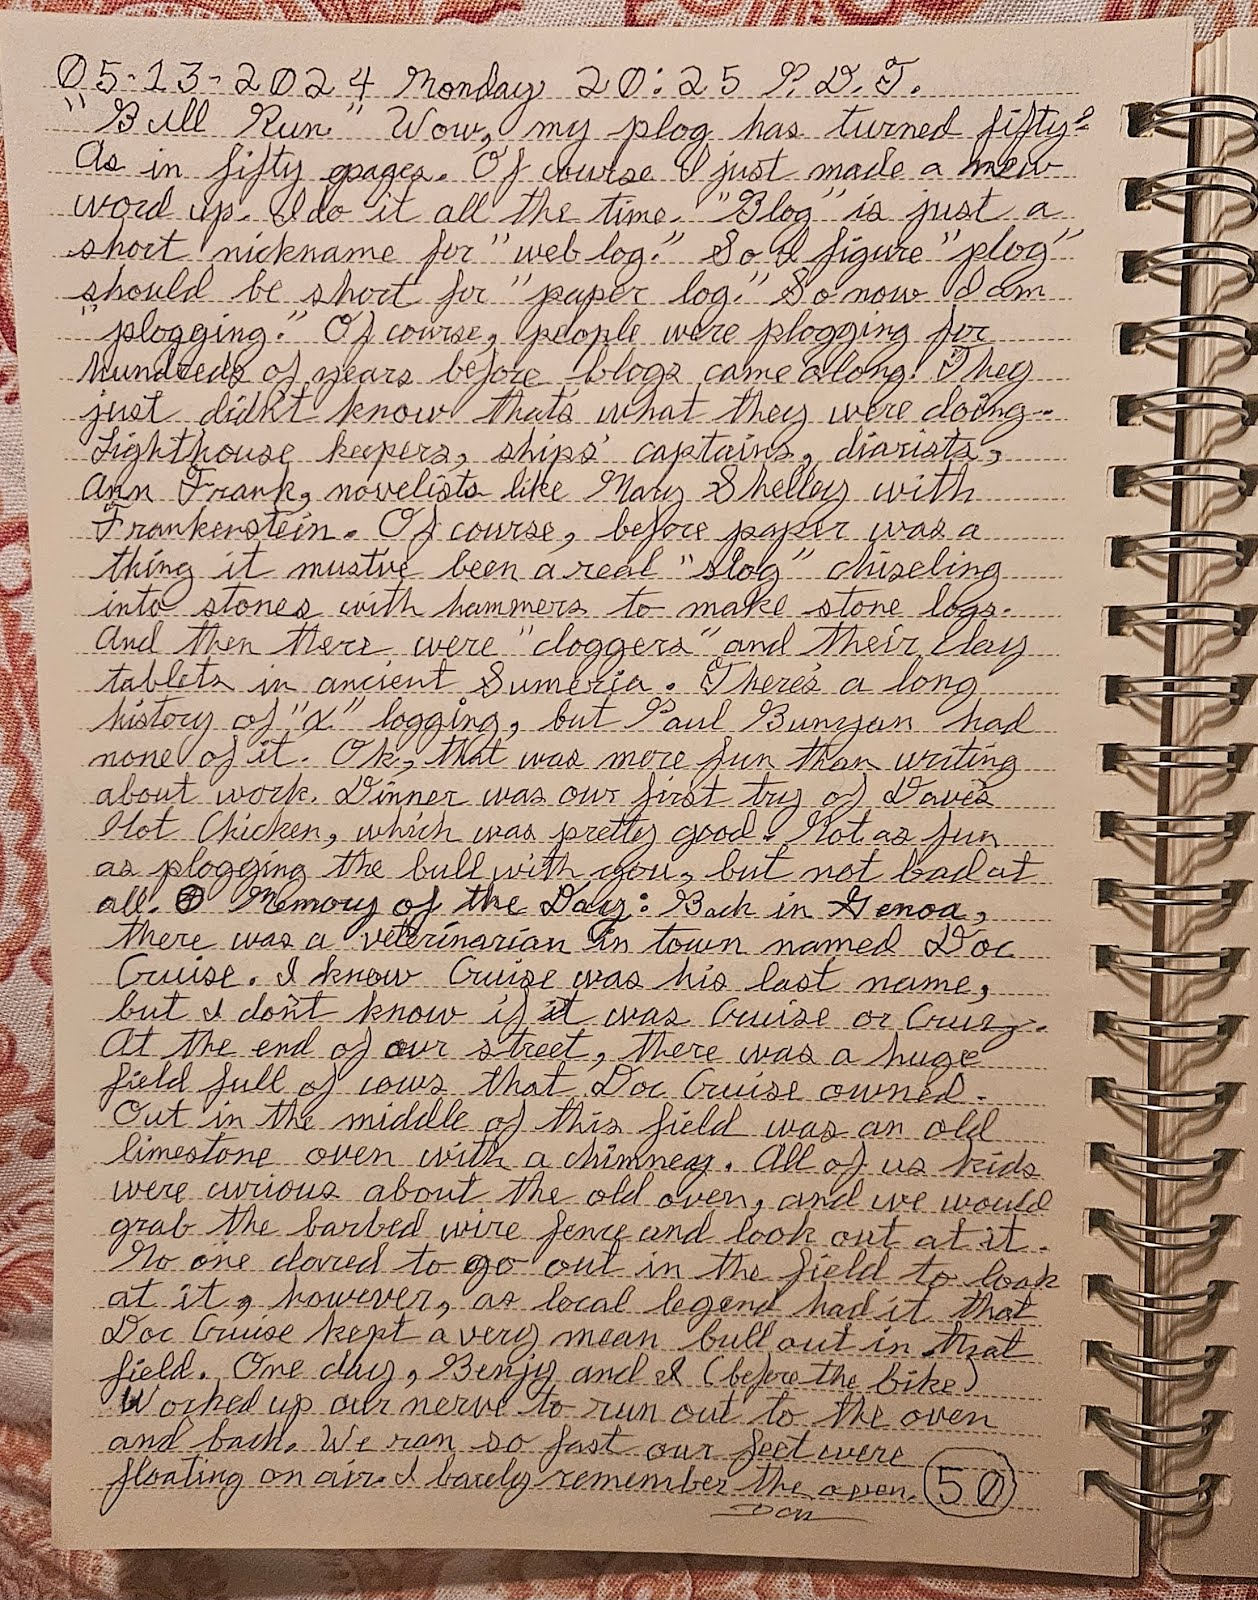 05-13-2024 Monday 20:25 P.D.T.
"Bull Run" Wow, my plog has turned fifty?
As in fifty pages. Of course I just made a new
word up. I do it all the time. "Blog" is just a
short nickname for "web log." So I figure "plog"
should be short for "paper log." So now I am
"plogging." Of course, people were plogging for
hundreds of years before blogs came along. They
just didn't know that's what they were doing--
Lighthouse keepers, ships' captains, diarists,
Ann Frank, novelists like Mary Shelley with
Frankenstein. Of course, before paper was a
thing it must've been a real "slog" chiseling
into stones with hammers to make stone logs.
And then there were "cloggers" and their clay
tablets in ancient Sumeria. There's a long
history of "X" logging, but Paul Bunyan had
none of it. Ok, that was more fun than writing
about work. Dinner was our first try of Dave's
Hot Chicken, which was pretty good. Not as fun
as plogging the bull with you, but not bad at
all. Memory of the Day: Back in Genoa,
there was a veterinarian in town named Doc
Cruise. I know Cruise was his last name,
but I don't know if it was Cruise or Cruz.
At the end of our street, there was a huge
field full of cows that Doc Cruise owned.
Out in the middle of this field was an old
limestone oven with a chimney. All of us kids
were curious about the old oven, and we would
grab the barbed wire fence and look out at it.
No one dared to go out in the field to look
at it, however, as local legend had it that
Doc Cruise kept a very mean bull out in that
field. One day, Benjy and I (before the bike)
Worked up our nerve to run out to the oven
and back. We ran so fast our feet were
floating on air. I barely remember the oven. 50
Don